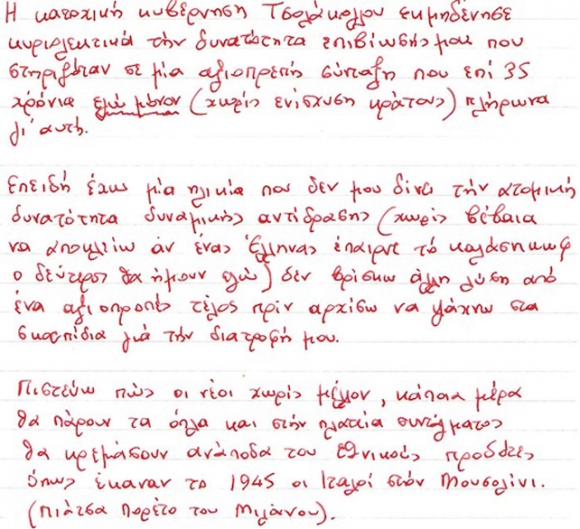 Η κατοχική κυβέρνηση Τσολάκογλου εκμηδένησε
κυριολεκτικά την δυνατότητα επιβίωσής μου που
στηριζόταν σε μία αξιοπρεπή σύνταξη που επί 35
χρόνια εγώ μόνον (χωρίς ενίσχυση κράτους) πλήρωνα
γι' αυτή.
Επειδή έχω μία ηλικία που δεν μου δίνει την ατομική
δυνατότητα δυναμικής αντίδρασης (χωρίς βέβαια
να αποκλείω αν ένας Έλληνας έπαιρνε το καλάσνικωφ
ο δεύτερος θα ήμουν εγώ) δεν βρίσκω άλλη λύση από
ένα αξιοπρεπές τέλος πριν αρχίσω να ψάχνω στα
σκουπίδια γιά την διατροφή μου.
Πιστεύω πώς οι νέοι χωρίς μέλλον, κάποια μέρα
θα πάρουν τα όπλα και στην πλατεία συντάγματος
θα κρεμάσουν ανάποδα του εθνικούς προδότες
όπως έκαναν το 1945 οι Ιταλοί στον Μουσολίνι.
(Πιάτσα Πορέτο του Μιλάνου).